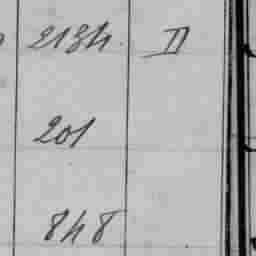 2134. II
201
848